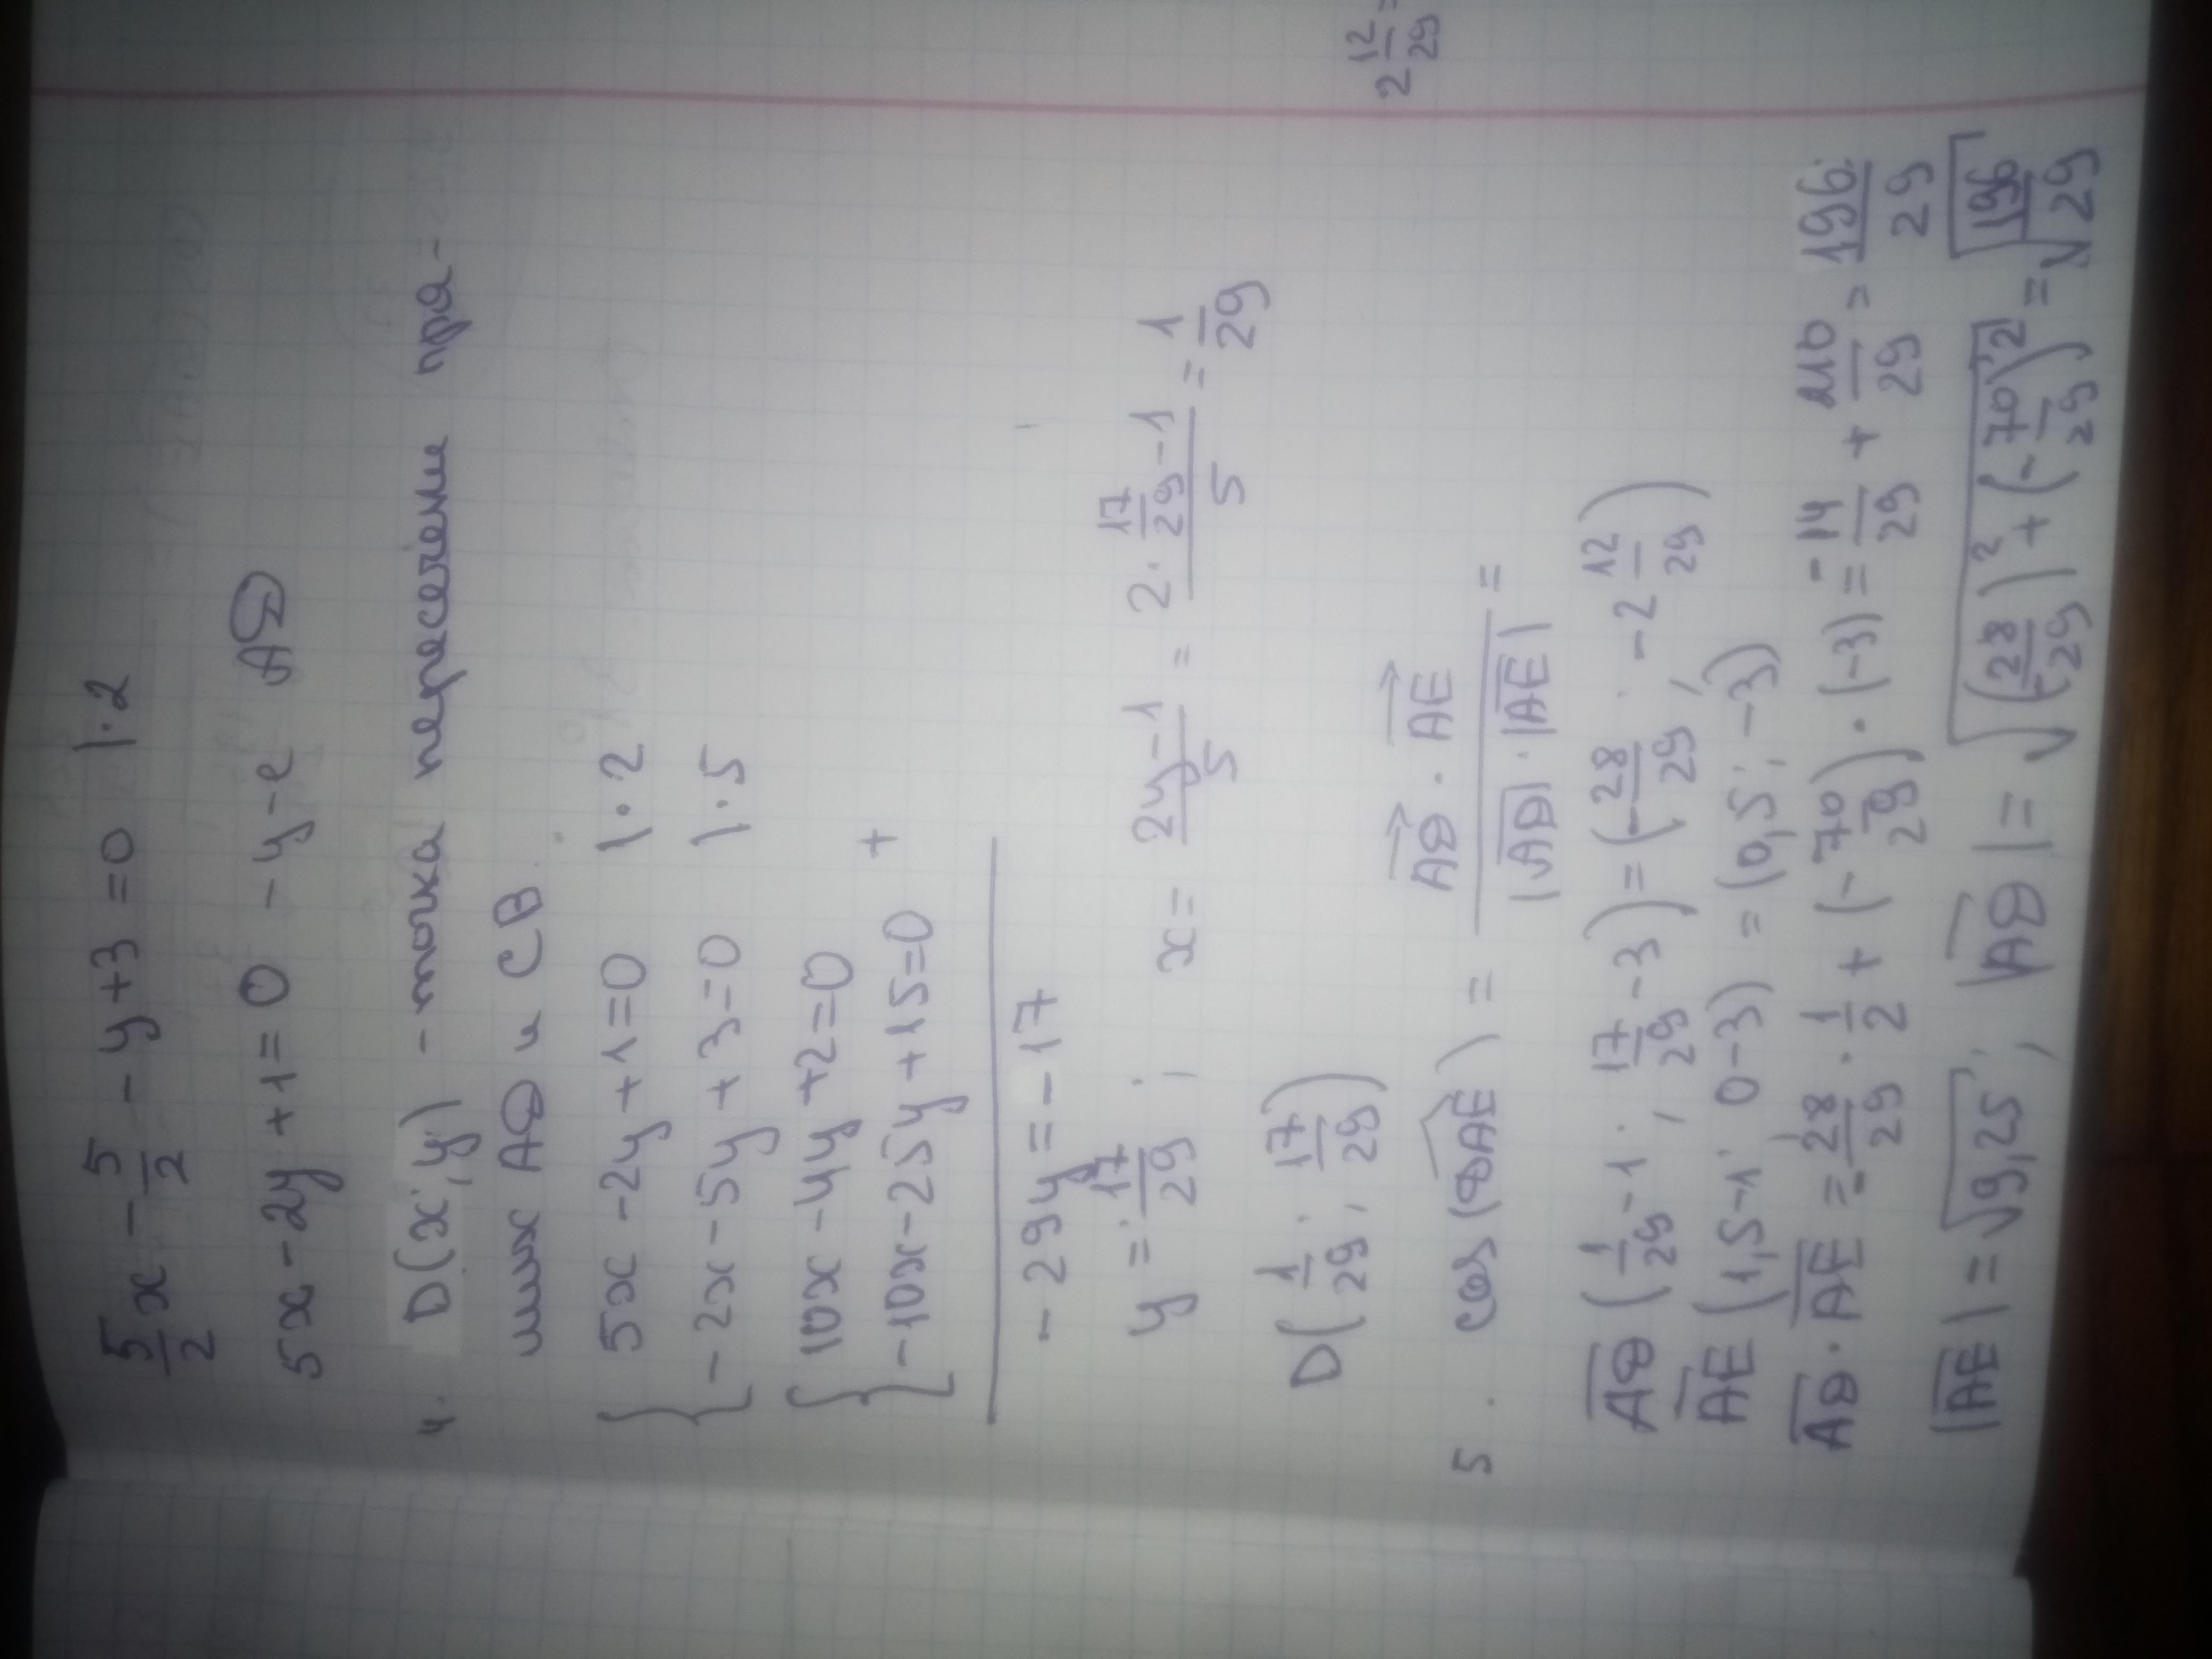 5/2 x - 5/2 - y + 3 = 0 |·2
5x - 2y + 1 = 0 - у-е AD
4. D(x; y) - точка пересечени пря-
мых AD и CB.
{ 5x - 2y + 1 = 0 |·2
- 2x - 5y + 3 = 0 |·5
{ 10x - 4y + 2 = 0
- 10x - 25y + 15 = 0 +
- 29y = - 17
y = 17/29 ; x = (2y - 1)/5 = (2 · 17/29 - 1)/5 = 1/29
D(1/29; 17/29)
2 12/29
5. cos(DAE) = (AD · AE)/(|AD| · |AE|) =
AD (1/29 - 1; 17/29 - 3) = (-28/29; -2 12/29)
AE (1,5 - 1; 0 - 3) = (0,5; -3)
AD · AE = -28/29 · 1/2 + (-70/29) · (-3) = -14/29 + 210/29 = 196/29
|AE| = √9,25; |AD| = √((28/29)² + (-70/29)²) = √(196/29)